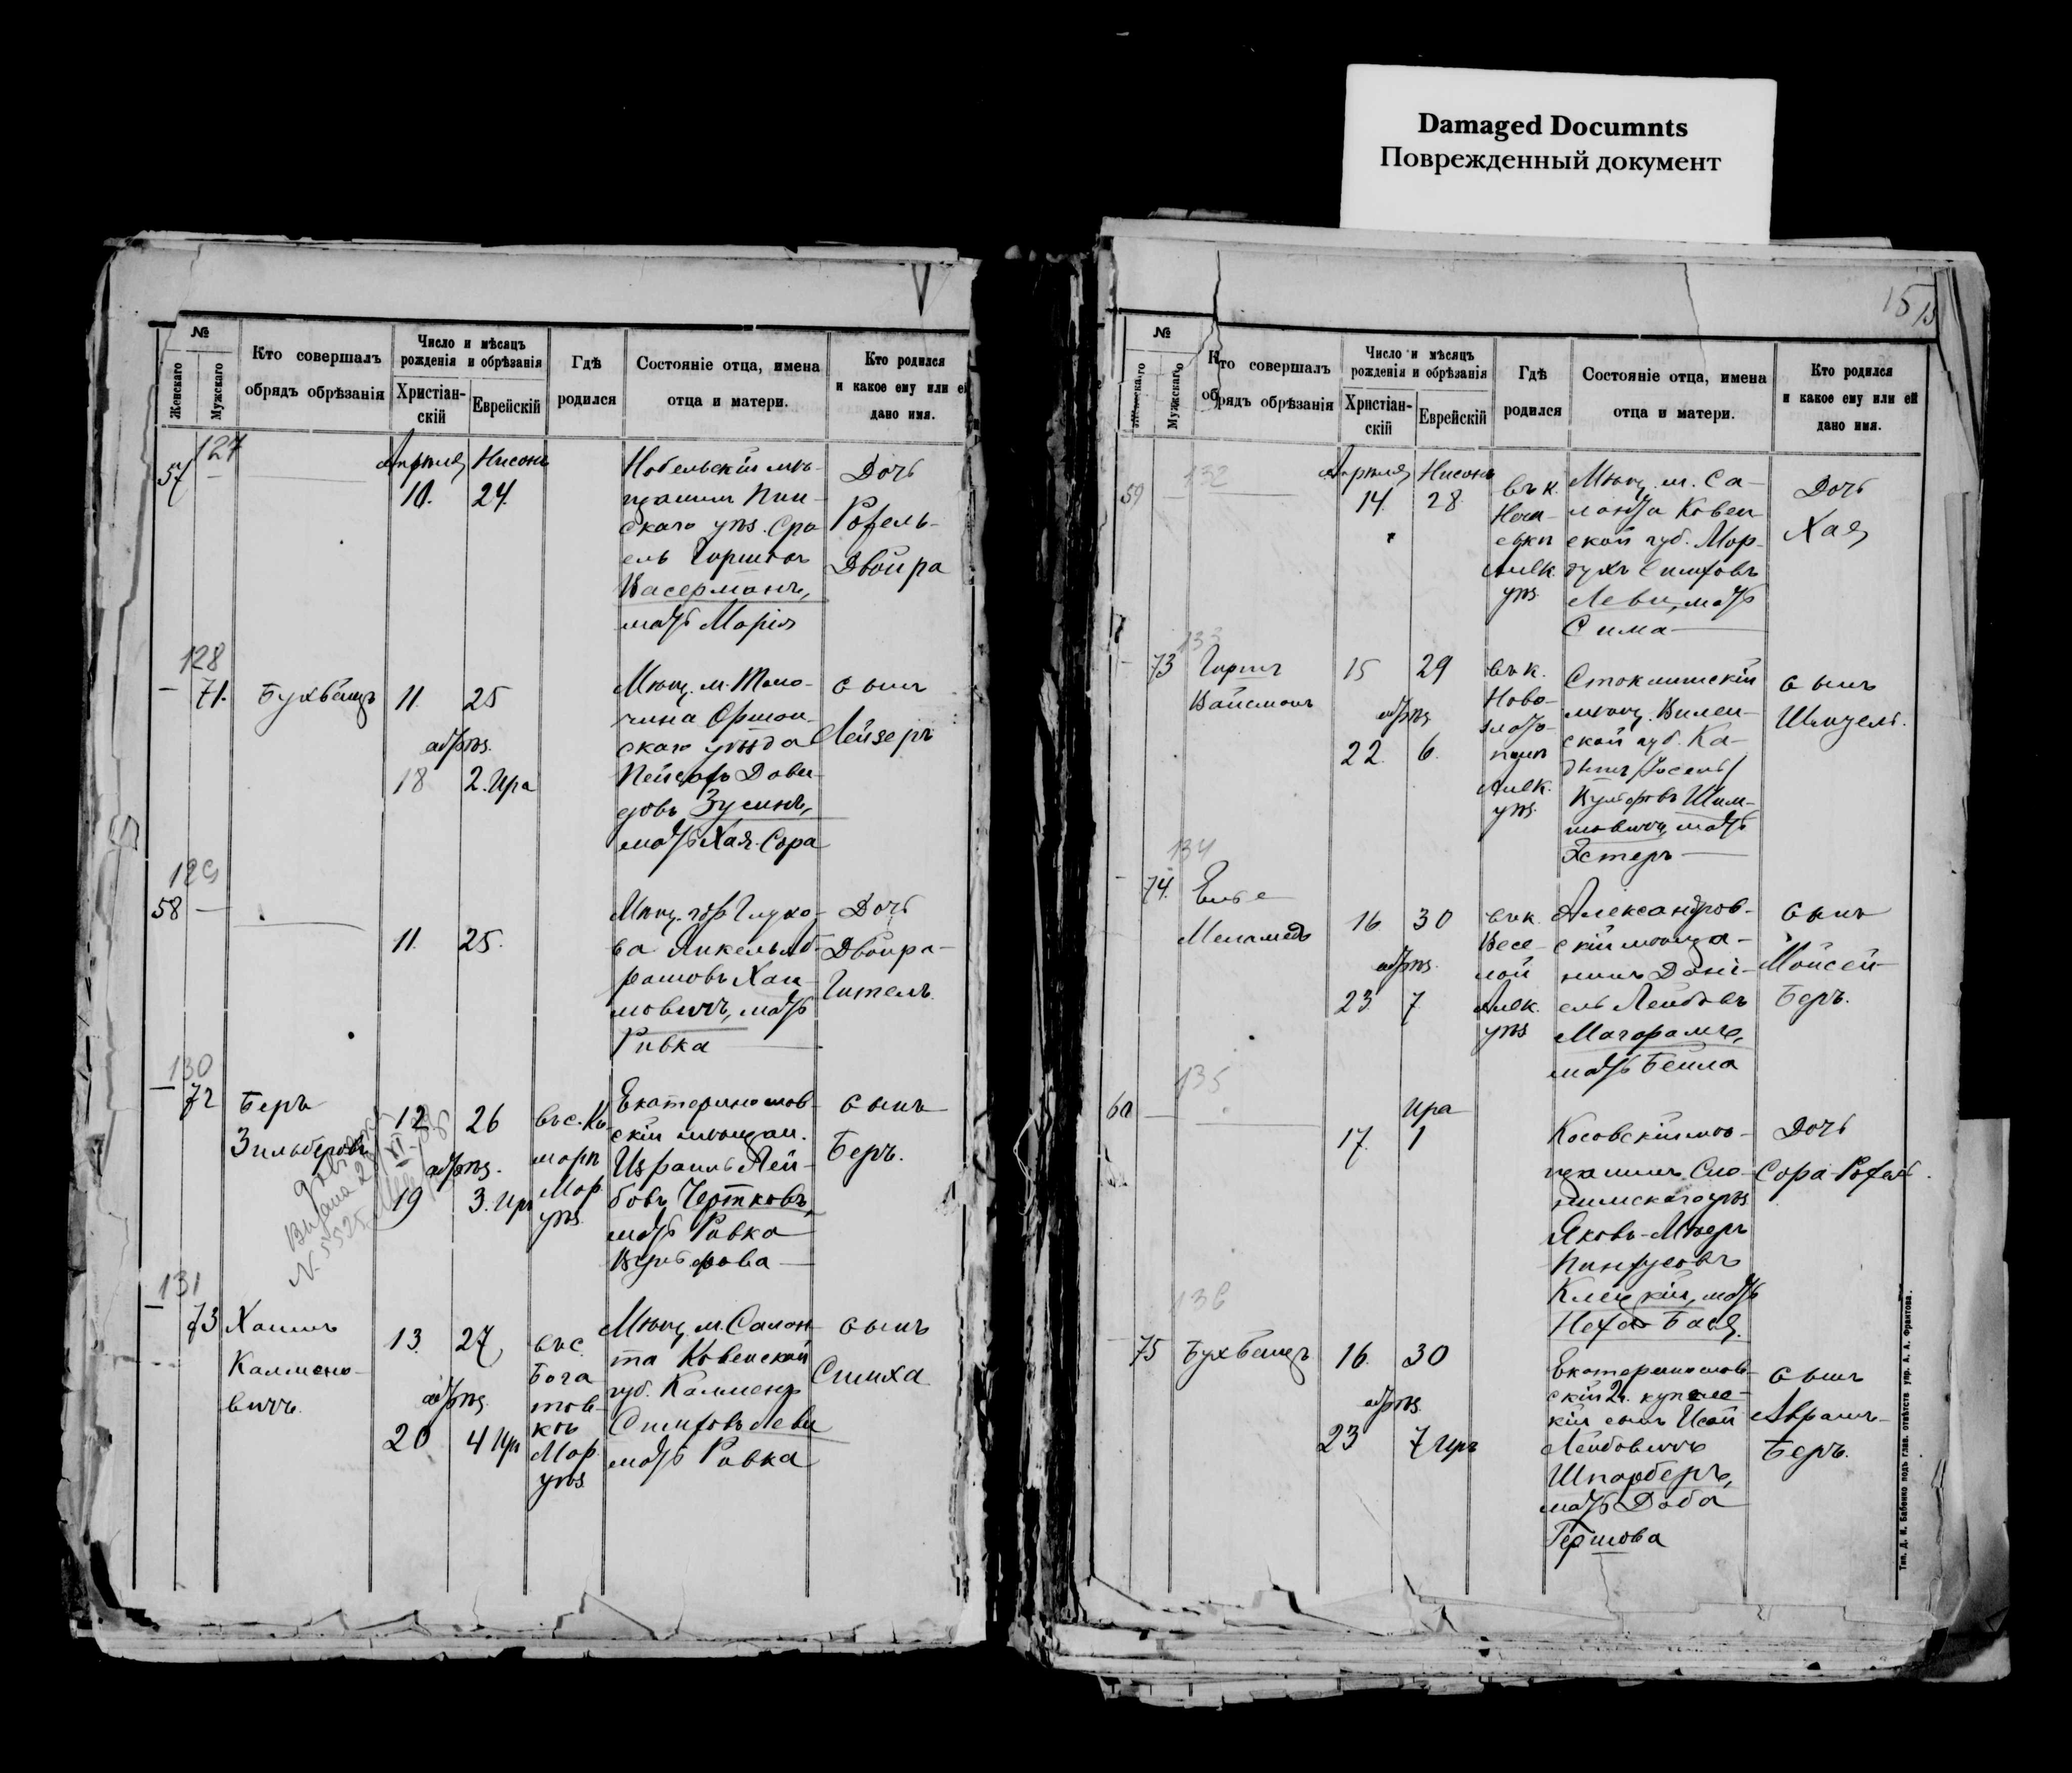 Damaged Documnts
Поврежденный документ
№
Женскаго
Мужскаго
Кто совершалъ
обрядъ обрѣзанія
Число и мѣсяцъ
рожденія и обрѣзанія
Христіан-
скій
Еврейскій
Гдѣ
родился
Состояніе отца, имена
отца и матери.
Кто родился
и какое ему или ей
дано имя.
127
57
Апрѣля
10.
Нисонъ
24.
Нобельскій мѣ-
щанинъ Пин-
скаго уѣз. Сро
ель Гиршовъ
Васерманъ,
мать Марія
Дочь
Рохель-
Двойра
128
71.
Бухбиндъ
11.
25
обрѣз.
18
2. Ира
Мѣщ. м. Толо-
чина Оршан-
скаго уѣзда
Пейсахъ Дави-
довъ Зусинъ,
мать Хая-Сора
сынъ
Лейзеръ
129
58
11.
25.
Мѣщ. гор Глухо-
ва Янкель Аб-
рамовъ Хаи-
мовичъ, мать
Ривка
Дочь
Двойра-
Гитель.
130
72
Беръ
Зильберовъ
12
26
обрѣз.
19
3. Ир
въ с. Ко
Мар
уѣз.
Екатеринослав-
скій мѣщан.
Израиль Лей-
бовъ Чертковъ,
мать Ривка
Вульфова
сынъ
Беръ.
131
73
Хаимъ
Калмено-
вичъ.
13.
27
обрѣз.
20
4 Ир
въ с.
Бога
тов-
кѣ
Мар.
уѣз.
Мѣщ. м. Салан-
та Ковенской
губ. Калменъ
Симховъ Леви
мать Ривка
сынъ
Симха
15
№
Женскаго
Мужскаго
Кто совершалъ
обрядъ обрѣзанія
Число и мѣсяцъ
рожденія и обрѣзанія
Христіан-
скій
Еврейскій
Гдѣ
родился
Состояніе отца, имена
отца и матери.
Кто родился
и какое ему или ей
дано имя.
132
59
Апрѣля
14.
Нисонъ
28.
въ к.
Алек.
уѣз.
Мѣщ. м. Са-
ланта Ковен
ской губ. Мор-
духъ Симховъ
Леви, мать
Сима
Дочь
Хая
133
73
Гиршъ
Вайсманъ
15
29
обрѣз
22.
6.
въ к.
Ново-
злато-
полѣ
Алек.
уѣз.
мѣщ. Вилен-
ской губ. Ка-
Вульфовъ Шим-
мовичъ, мать
Эстеръ
сынъ
Шмуель.
134
74.
Меламедъ
16.
30
обрѣз.
23.
7.
въ к.
Весе-
лой
Алек.
уѣз
Александров-
скій мѣща-
нинъ Дани-
ель Лейбовъ
Магарамъ,
мать Бейла
сынъ
Мойсей-
Беръ.
135
60
17.
Ира
1
Косовскій мѣ-
щанинъ Сло-
нимскаго уѣз
Яковъ-Мееръ
Пинхусовъ
Клецкій, мать
Неха-Бася.
Дочь
Сора-Рохель.
136
75
Бухбиндъ
16.
30
обрѣз.
23
7 Ира
Екатеринослав-
скій 2 г. купече-
кій сынъ Исай
Лейбовичъ
Шпарберъ,
мать Доба
Гершова
сынъ
Абрамъ-
Беръ.
Тип. Д. Я. Бабенко подъ глав. отвѣтств упр. А. А. Франтова.